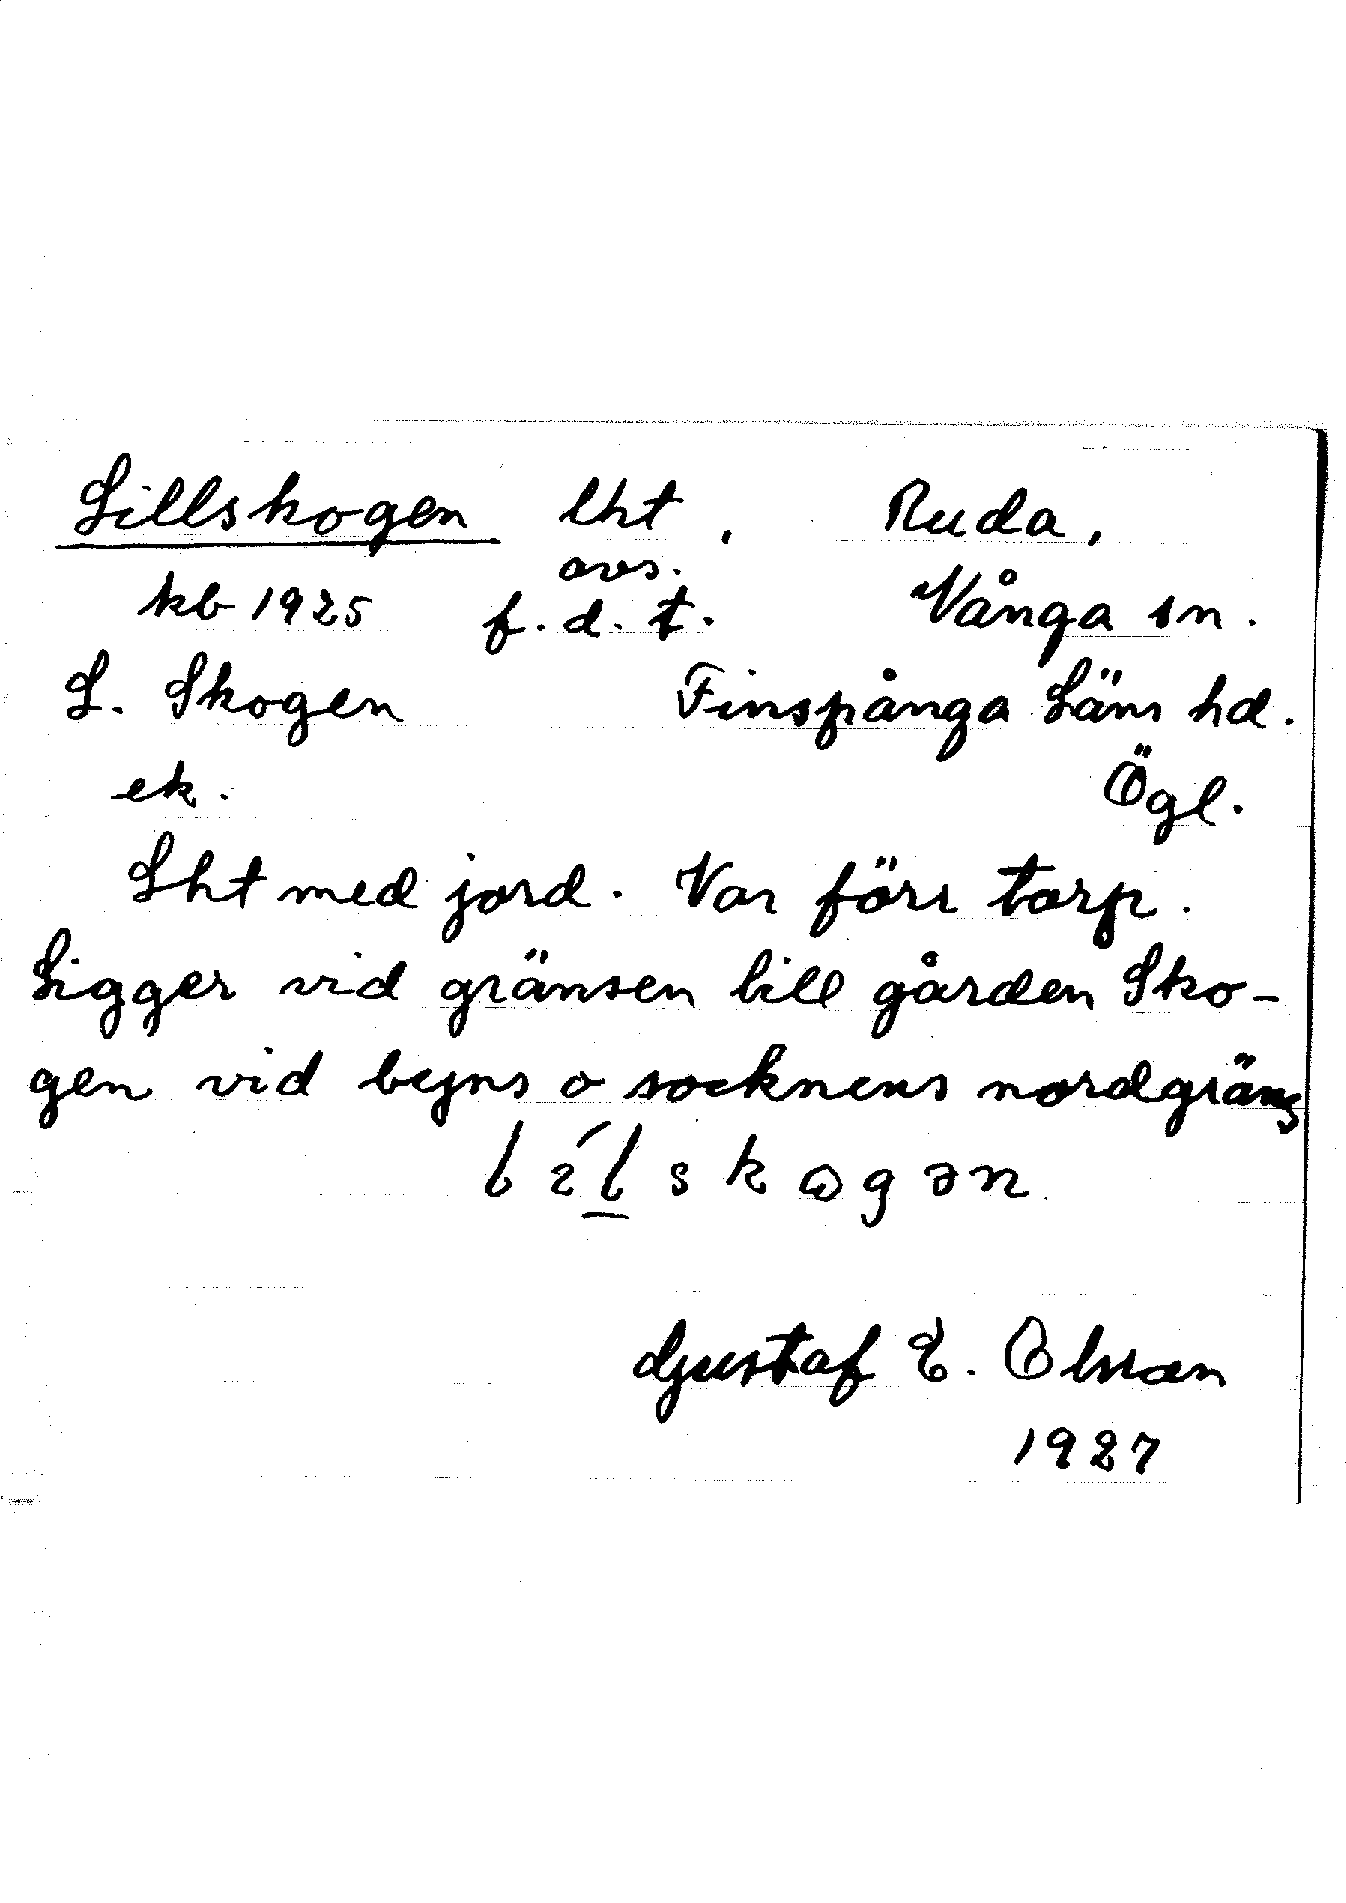 Lillskogen lht, Ruda,
avs.
kb 1925 f.d.t. Vånga sn.
L. Skogen Finspånga Läns hd.
ek. Ögl.
Lht med jord. Var förr torp.
Ligger vid gränsen till gården Sko-
gen vid byns o socknens nordgräns
Gustaf E. Olsson
1927